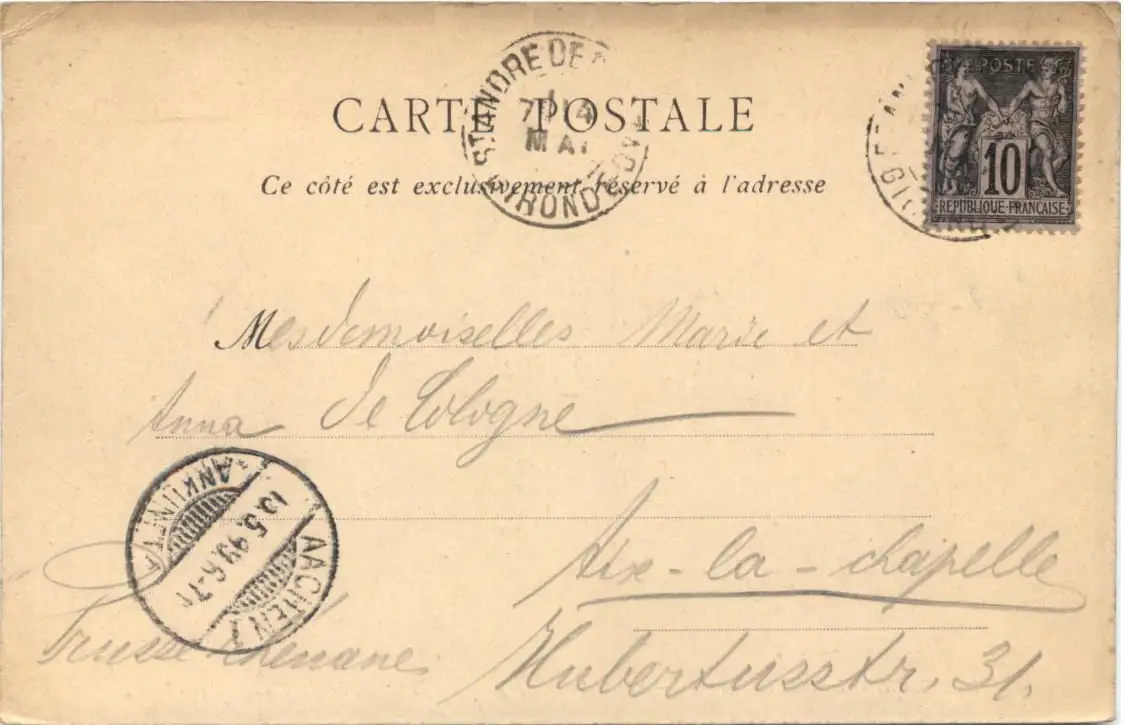 CARTE POSTALE
Ce côté est exclusivement réservé à l'adresse
ST ANDRE DE
7
14
MAI
GIRONDE
POSTE
10
REPUBLIQUE FRANÇAISE
Mesdemoiselles Marie et
Anna de Cologne
Aix-la-chapelle
Hubertusstr. 31.
Prusse rhénane
ANKUNFT
.5.99. 6-7
AACHEN 1